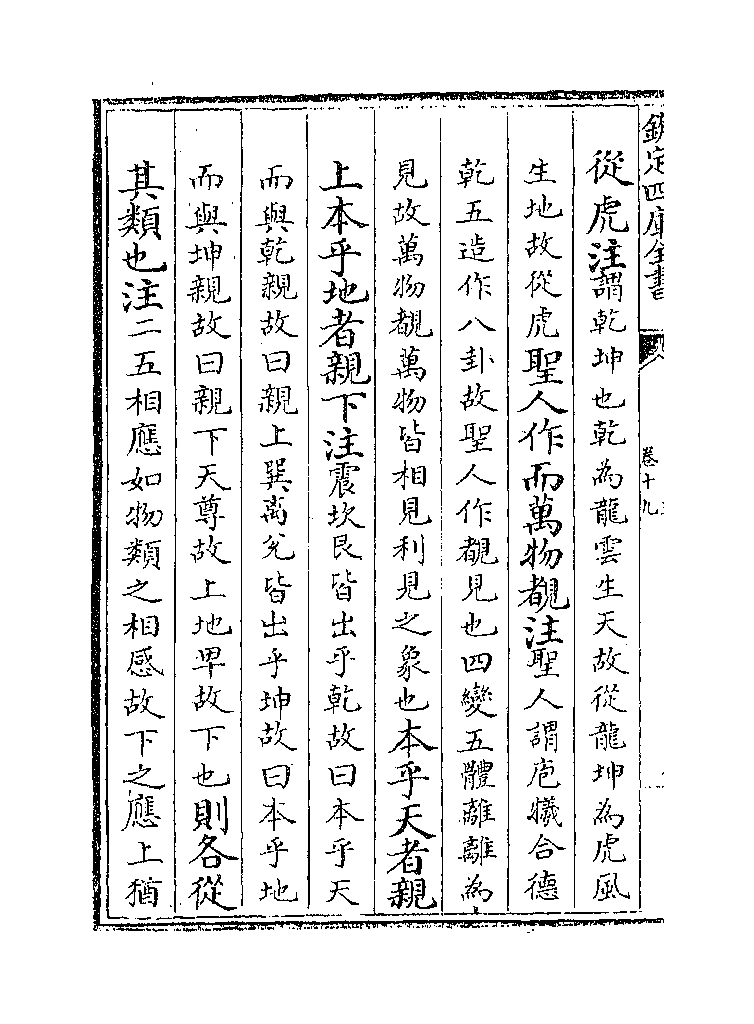 欽定四庫全書
卷十九
從虎注謂乾坤也乾為龍雲生天故從龍坤為虎風
生地故從虎聖人作而萬物覩注聖人謂庖犧合德
乾五造作八卦故聖人作覩見也四變五體離離為
見故萬物覩萬物皆相見利見之象也本乎天者親
上本乎地者親下注震坎艮皆出乎乾故曰本乎天
而與乾親故曰親上巽离兌皆出乎坤故曰本乎地
而與坤親故曰親下天尊故上地卑故下也則各從
其類也注二五相應如物類之相感故下之應上猶